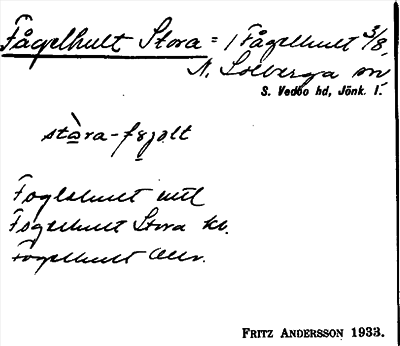 Fågelhult Stora = 1 Fågelhult 3/8,
N. Solberga sn
S. Vedbo hd, Jönk. l.
stàra-fəjəlt
Foglahult mtl
Fogelhult Stora kb.
Fogelhult
FRITZ ANDERSSON 1933.